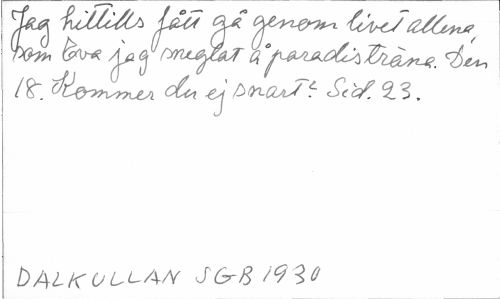 Jag hittills fått gå genom livet allena,
som Eva jag sneglat å paradisträna. Den
18. Kommer du ej snart? Sid. 23.
DALKULLAN SGB 1930